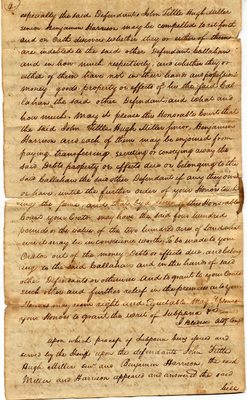 especially the said Defendants John Tittle Hugh Miller
Junior Benjamin Harrison may be compelled to set forth
and on Oath discover whether they or either of them
are indebted to the said other Defendant Callahan
and in how much respectively and whether they or
either of them have not in their hands and possession
money goods property or effects of his the said
Callahan, the said other Defendant and what and
how much. May it please this Honorable Court that
the said John Tittle, Hugh Miller junior, Benjamin
Harrison and each of them may be enjoined from
paying transferring secreting or conveying away the
said debts property or effects due or belonging to the
said Callahan the other Defendant if any they owe
or have until the further order of your Honors
the same and by a decree of this Honorable
Court your Orator may have the said four hundred
pounds or the value of the two hundred acres of Land
to be made to your
Orator out of the money debts or effects due and belong
ing to the said Callahan and in the hands of said
other Defendants or otherwise and to grant to your Orator
such other and further relief in the premises as to your
Honors may seem right and Equitable May it please
your Honors to grant the writ of Subpoena &c
upon which precept of Subpoena being issued and
served by the Sheriff upon the defendants John Tittle
Hugh Miller Junr and Benjamin Harrison the said
Miller and Harrison appeared and answered the said